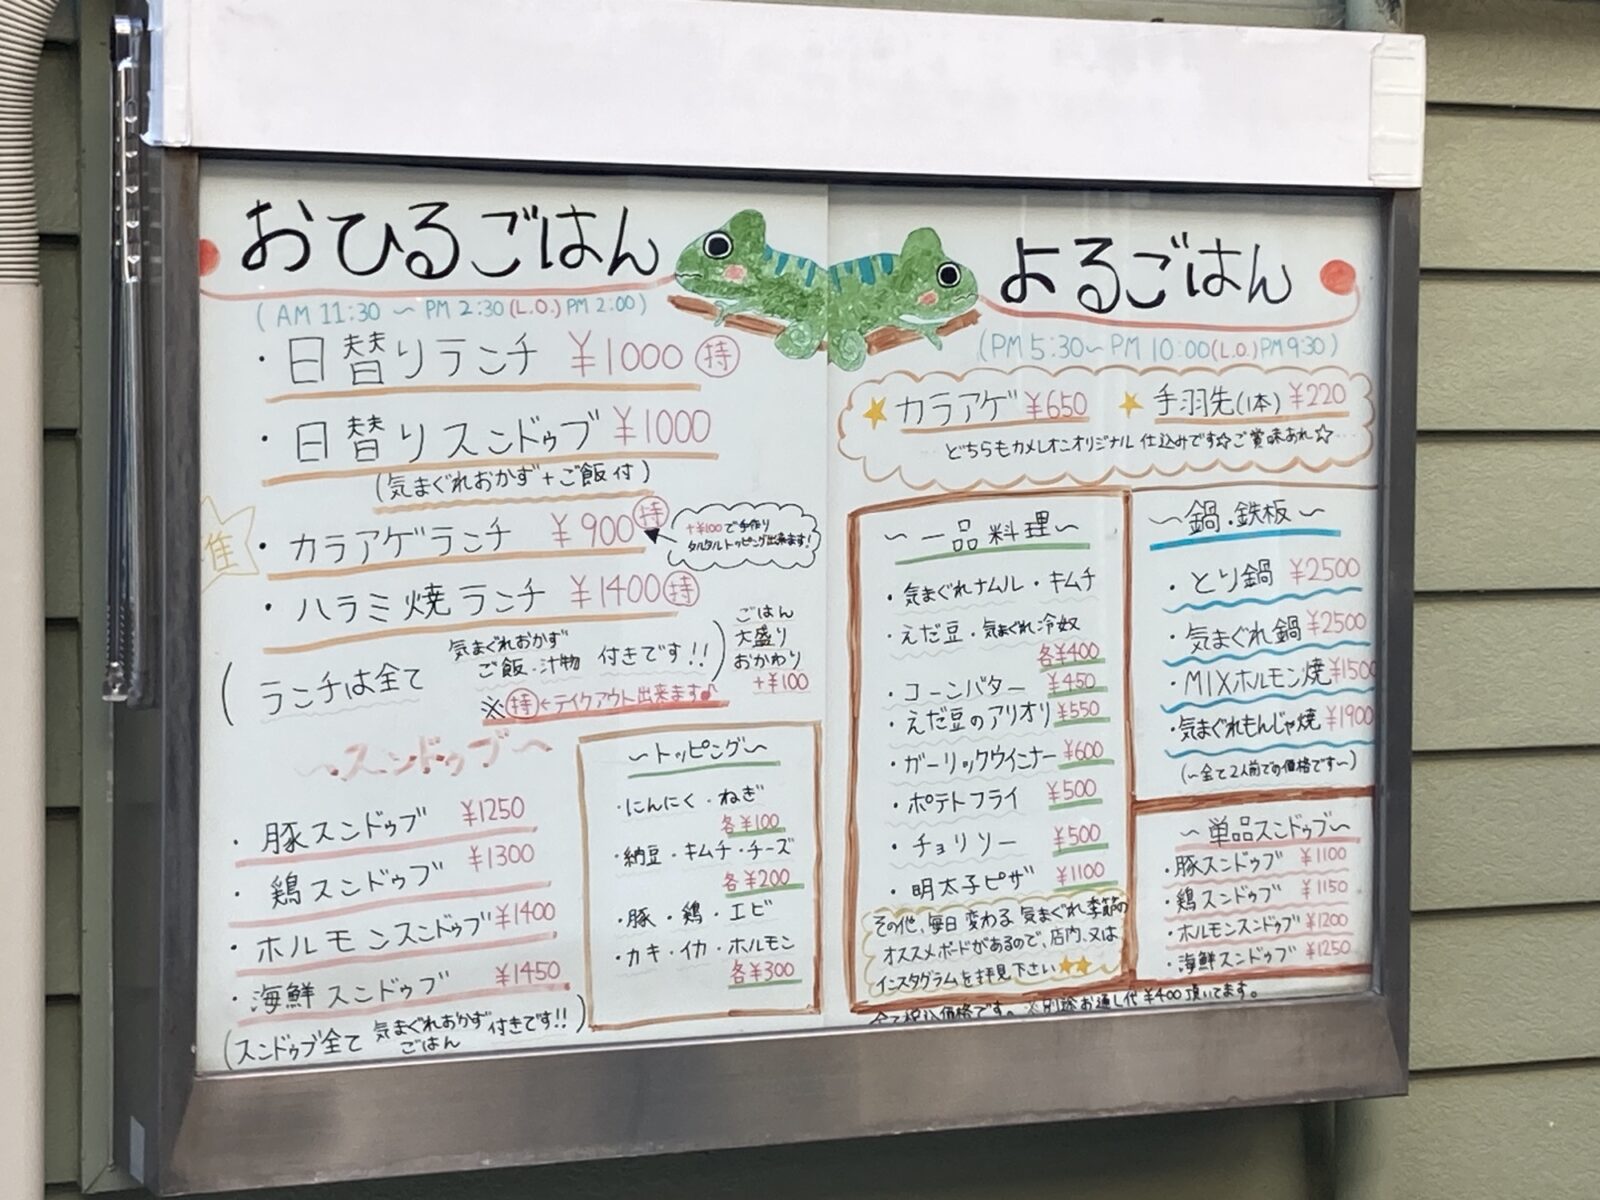 おひるごはん
(AM 11:30 〜 PM 2:30(L.O.)PM 2:00)
・日替りランチ ¥1000 持
・日替りスンドゥブ ¥1000
(気まぐれおかず+ご飯付)
・カラアゲランチ ¥900 持
+¥100で手作り
タルタルトッピング出来ます!
・ハラミ焼ランチ ¥1400 持
(ランチは全て 気まぐれおかず ご飯・汁物 付きです!!)
※持←テイクアウト出来ます♪
ごはん
大盛り
おかわり
+¥100
〜スンドゥブ〜
・豚スンドゥブ ¥1250
・鶏スンドゥブ ¥1300
・ホルモンスンドゥブ ¥1400
・海鮮スンドゥブ ¥1450
(スンドゥブ全て 気まぐれおかず ごはん 付きです!!)
〜トッピング〜
・にんにく・ねぎ
各¥100
・納豆・キムチ・チーズ
各¥200
・豚・鶏・エビ
・カキ・イカ・ホルモン
各¥300
よるごはん
(PM 5:30〜PM 10:00(L.O.)PM 9:30)
★カラアゲ ¥650 ★手羽先(1本) ¥220
どちらもカメレオンオリジナル仕込みです☆ご賞味あれ☆
〜一品料理〜
・気まぐれナムル・キムチ
・えだ豆・気まぐれ冷奴
各¥400
・コーンバター ¥450
・えだ豆のアリオリ ¥550
・ガーリックウインナー ¥600
・ポテトフライ ¥500
・チョリソー ¥500
・明太子ピザ ¥1100
その他、毎日変わる気まぐれ季節の
オススメボードがあるので、店内、又は
インスタグラムを拝見下さい★★
〜鍋・鉄板〜
・とり鍋 ¥2500
・気まぐれ鍋 ¥2500
・MIXホルモン焼 ¥1500
・気まぐれもんじゃ焼 ¥1900
(〜全て2人前での価格です〜)
〜単品スンドゥブ〜
・豚スンドゥブ ¥1100
・鶏スンドゥブ ¥1150
・ホルモンスンドゥブ ¥1200
・海鮮スンドゥブ ¥1250
全て税込価格です。※別途お通し代¥400頂いてます。